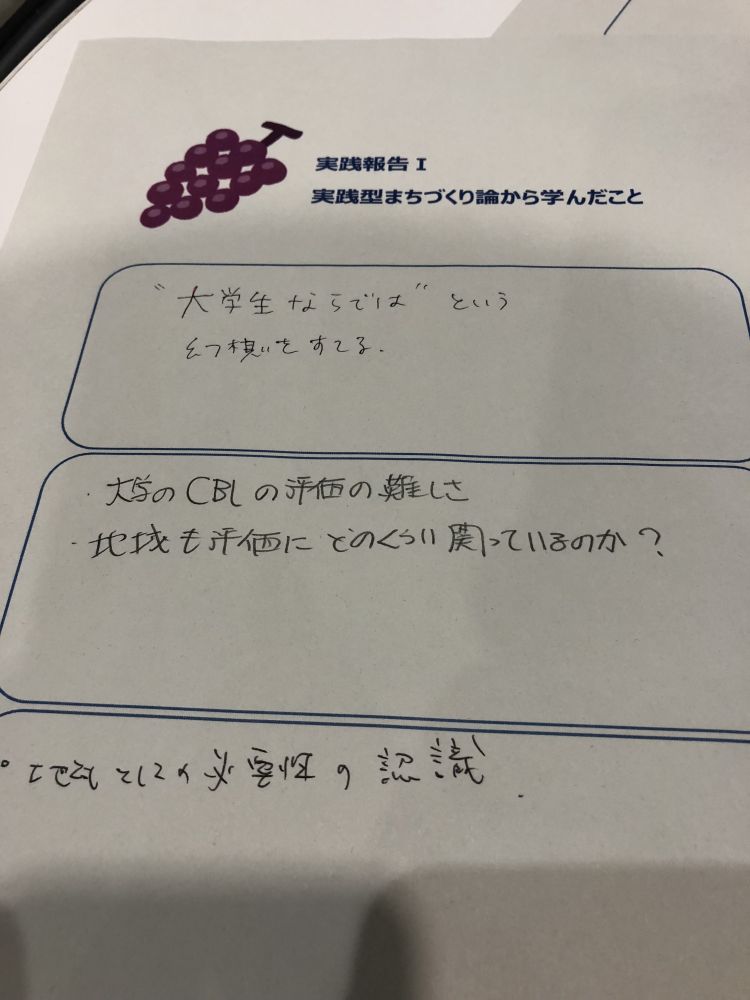 実践報告 I
実践型まちづくり論から学んだこと
"大学生ならでは"という
幻想をすてる.
・大学のCBLの評価の難しさ
・地域も評価にどのくらい関っているのか?
の必要性の認識